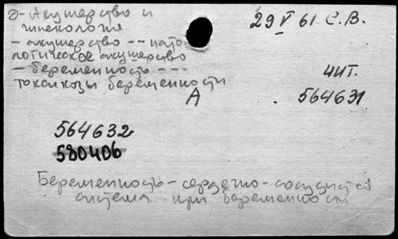 Э- Акушерство и
гинекология
29 V 61 С.В.
- акушерство - - пато-
логическое акушерство
- беременность - - -
токсикозы беременности
чит.
А
564631
564632
580406
Беременность - сердечно-сосудистая
система при беременности